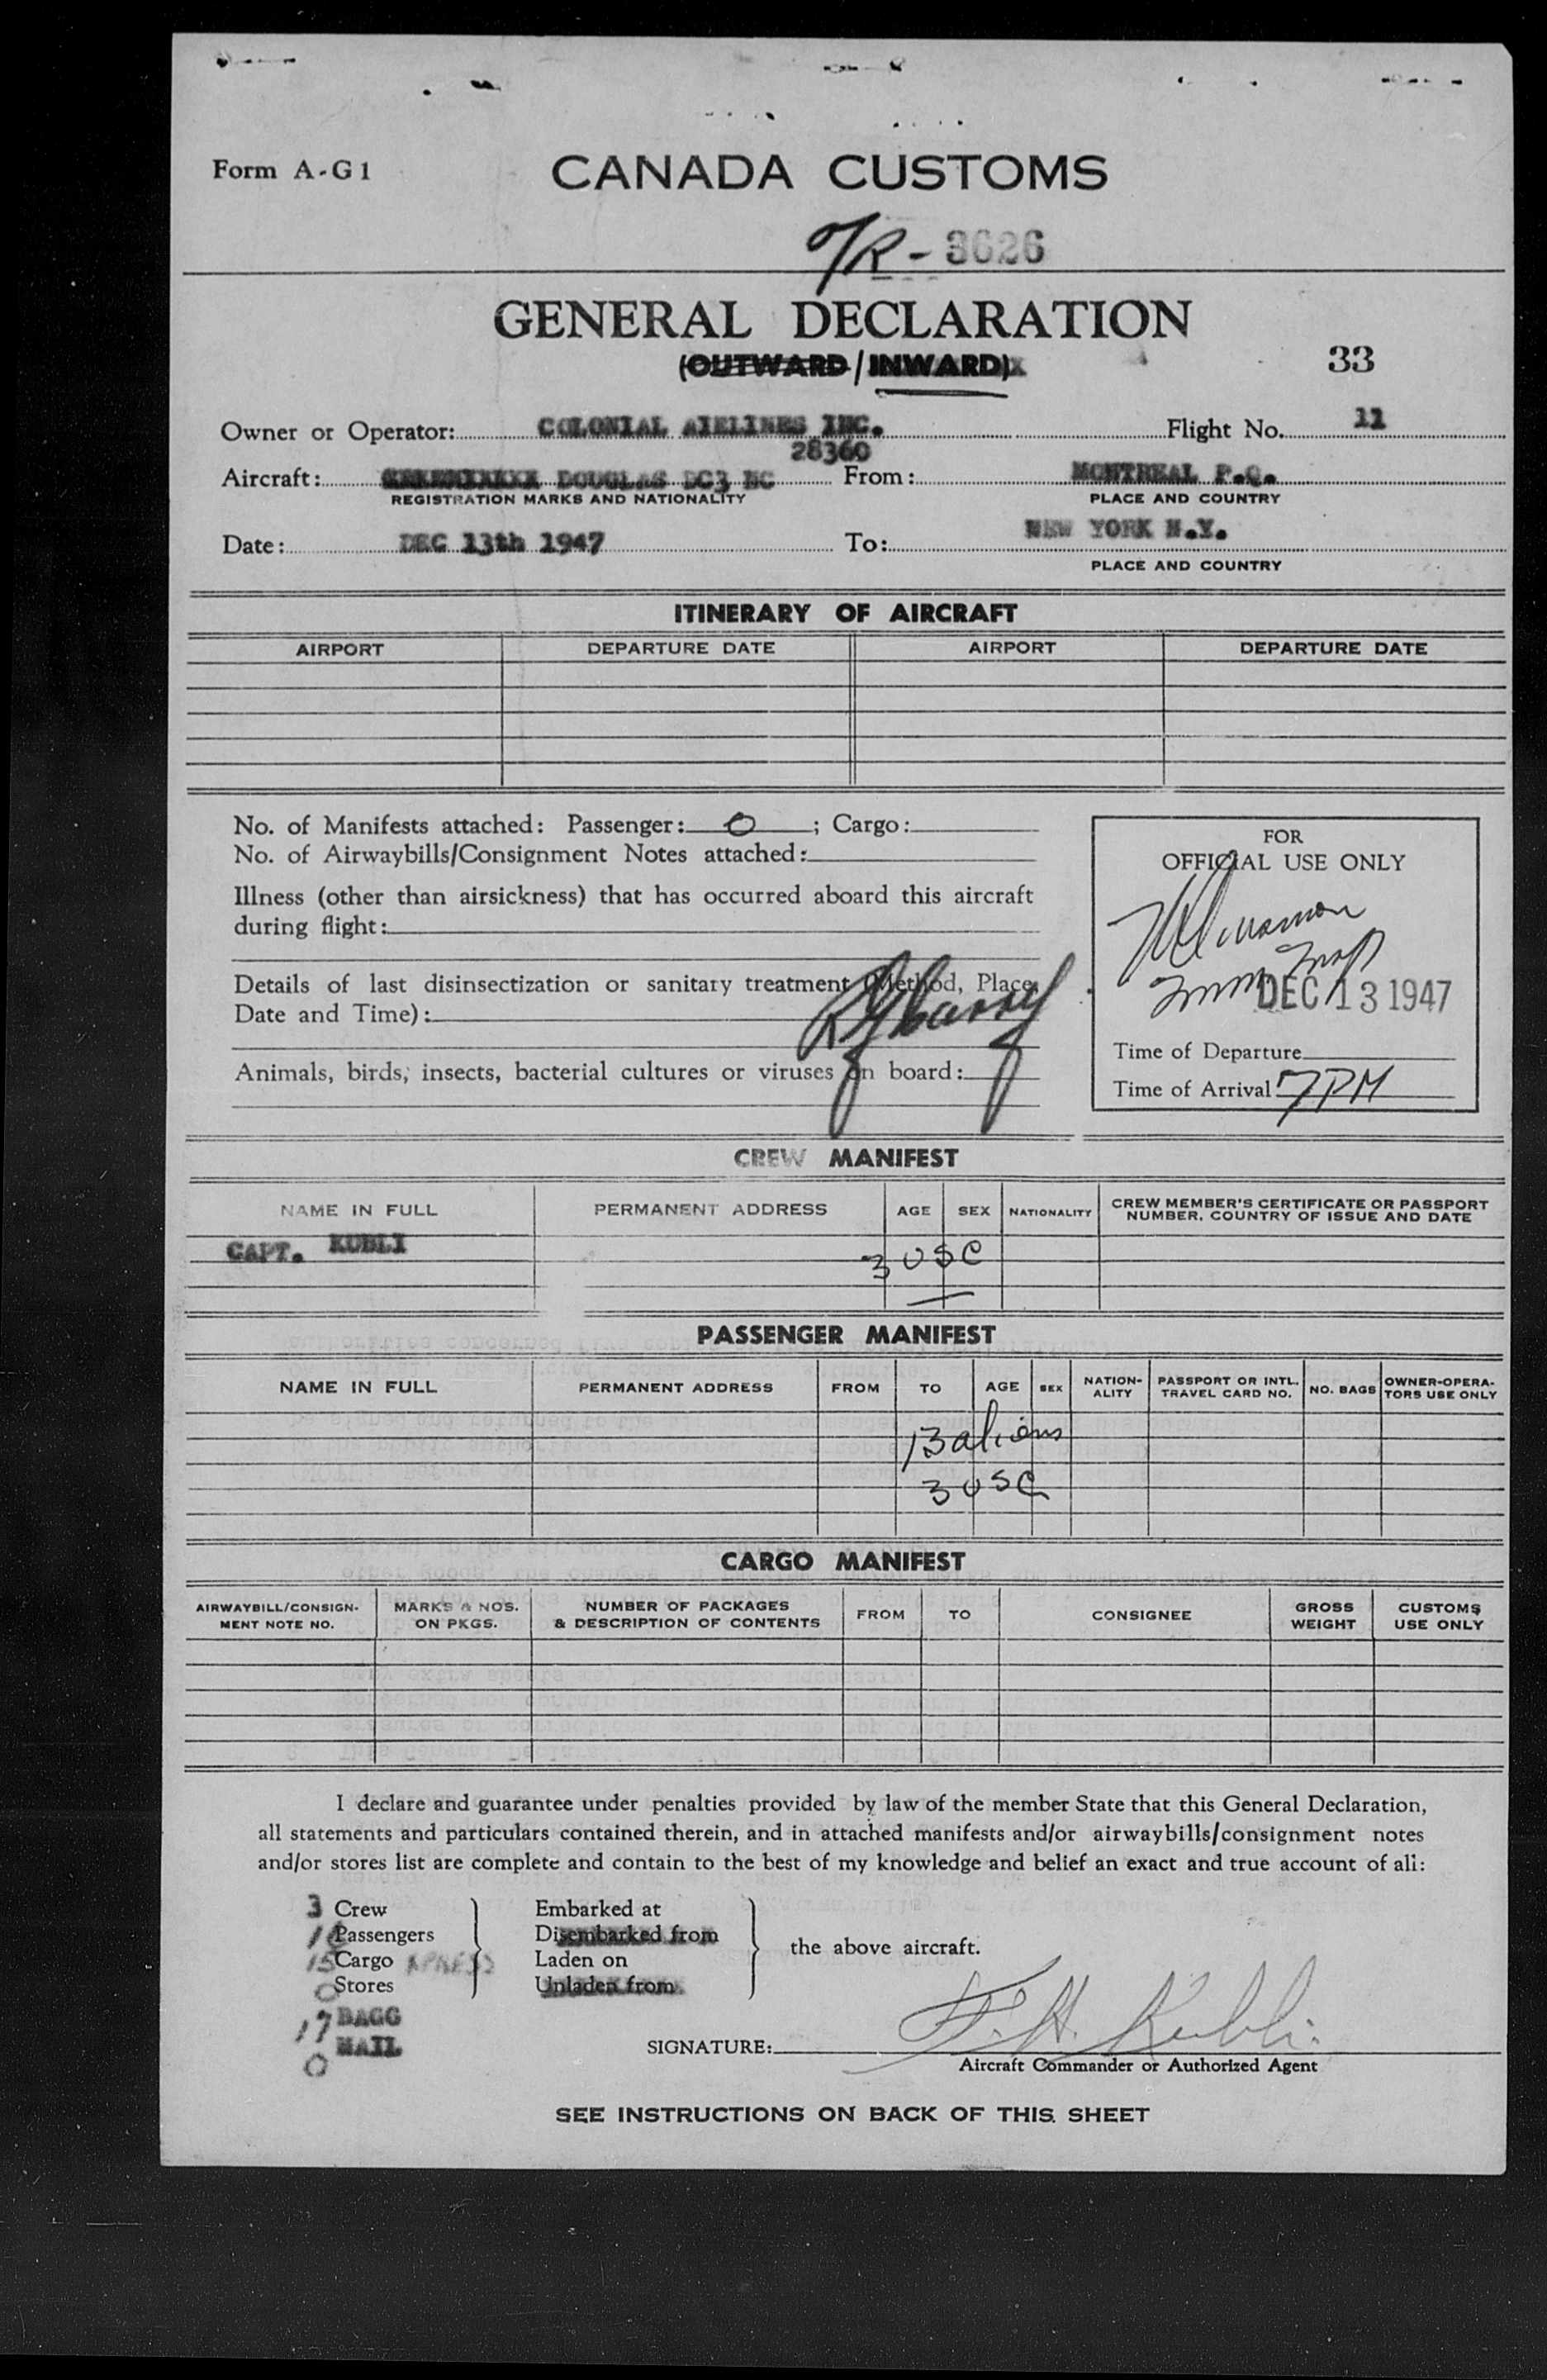 Form A-G1
CANADA CUSTOMS
O/R - 3626
GENERAL DECLARATION
(OUTWARD / INWARD)
33
Owner or Operator: COLONIAL AIRLINES INC. Flight No. 11
28360
Aircraft: DOUGLAS DC3 NC From: MONTREAL P.Q.
REGISTRATION MARKS AND NATIONALITY PLACE AND COUNTRY
Date: DEC 13th 1947 To: NEW YORK N.Y.
PLACE AND COUNTRY
ITINERARY OF AIRCRAFT
AIRPORT DEPARTURE DATE AIRPORT DEPARTURE DATE
No. of Manifests attached: Passenger: 0 ; Cargo:
No. of Airwaybills/Consignment Notes attached:
Illness (other than airsickness) that has occurred aboard this aircraft
during flight:
Details of last disinsectization or sanitary treatment (Method, Place,
Date and Time):
Animals, birds, insects, bacterial cultures or viruses on board:
FOR
OFFICIAL USE ONLY
Imm Insp
DEC 13 1947
Time of Departure
Time of Arrival 7PM
CREW MANIFEST
NAME IN FULL PERMANENT ADDRESS AGE SEX NATIONALITY CREW MEMBER'S CERTIFICATE OR PASSPORT
NUMBER, COUNTRY OF ISSUE AND DATE
CAPT. KUBLI
3 USC
PASSENGER MANIFEST
NAME IN FULL PERMANENT ADDRESS FROM TO AGE SEX NATION-
ALITY PASSPORT OR INTL.
TRAVEL CARD NO. NO. BAGS OWNER-OPERA-
TORS USE ONLY
13 aliens
3 USC
CARGO MANIFEST
AIRWAYBILL/CONSIGN-
MENT NOTE NO. MARKS & NOS.
ON PKGS. NUMBER OF PACKAGES
& DESCRIPTION OF CONTENTS FROM TO CONSIGNEE GROSS
WEIGHT CUSTOMS
USE ONLY
I declare and guarantee under penalties provided by law of the member State that this General Declaration,
all statements and particulars contained therein, and in attached manifests and/or airwaybills/consignment notes
and/or stores list are complete and contain to the best of my knowledge and belief an exact and true account of all:
3 Crew
16 Passengers
15 Cargo XPRESS
0 Stores
17 BAGG
0 MAIL
Embarked at
Disembarked from
Laden on
Unladen from
the above aircraft.
SIGNATURE: F. H. Kubli
Aircraft Commander or Authorized Agent
SEE INSTRUCTIONS ON BACK OF THIS SHEET